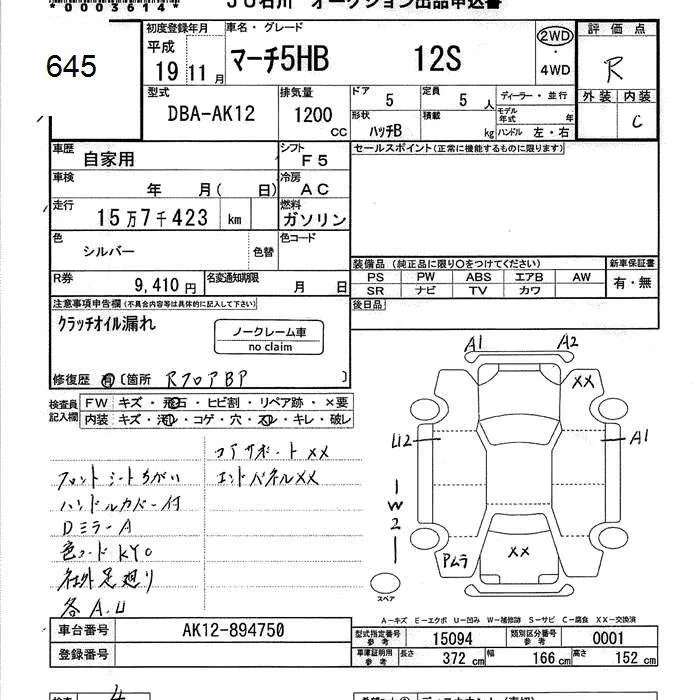 *0003614*
JU石川 オークション出品申込書
645
初度登録年月 平成 19 11 月
車名・グレード マーチ5HB 12S
2WD ・ 4WD
評価点 R
外装 内装 C
型式 DBA-AK12
排気量 1200 CC
ドア 5
定員 5 人
形状 ハッチB
積載 kg
ディーラー・並行
モデル年式 年
ハンドル 左・右
車歴 自家用
シフト F5
セールスポイント(正常に機能するものに限ります)
車検 年 月( 日)
冷房 AC
走行 15万7千423 km
燃料 ガソリン
色 シルバー 色替
色コード
R券 9,410円
名変通知期限 月 日
装備品 (純正品に限り○をつけてください)
PS PW ABS エアB AW
SR ナビ TV カワ
新車保証書 有・無
後日品
注意事項申告欄(不具合内容等は具体的に記入して下さい)
クラッチオイル漏れ
ノークレーム車
no claim
修復歴 有 〔箇所 RフロアBP 〕
検査員記入欄
FW キズ・飛石・ヒビ割・リペア跡・×要
内装 キズ・汚れ・コゲ・穴・スレ・キレ・破レ
コアサポートXX
フロントシートちがい エンドパネルXX
ハンドルカバー付
DミラーA
色コードKY0
社外足廻り
各A.U
A1 A2
XX
U2 A1
W2
Pムラ XX
スペア
A―キズ E―エクボ U―凹み W―補修跡 S―サビ C―腐食 XX―交換済
車台番号 AK12-894750
登録番号
型式指定番号 参考 15094
類別区分番号 参考 0001
車庫証明用 参考 長さ 372 cm 幅 166 cm 高さ 152 cm
4